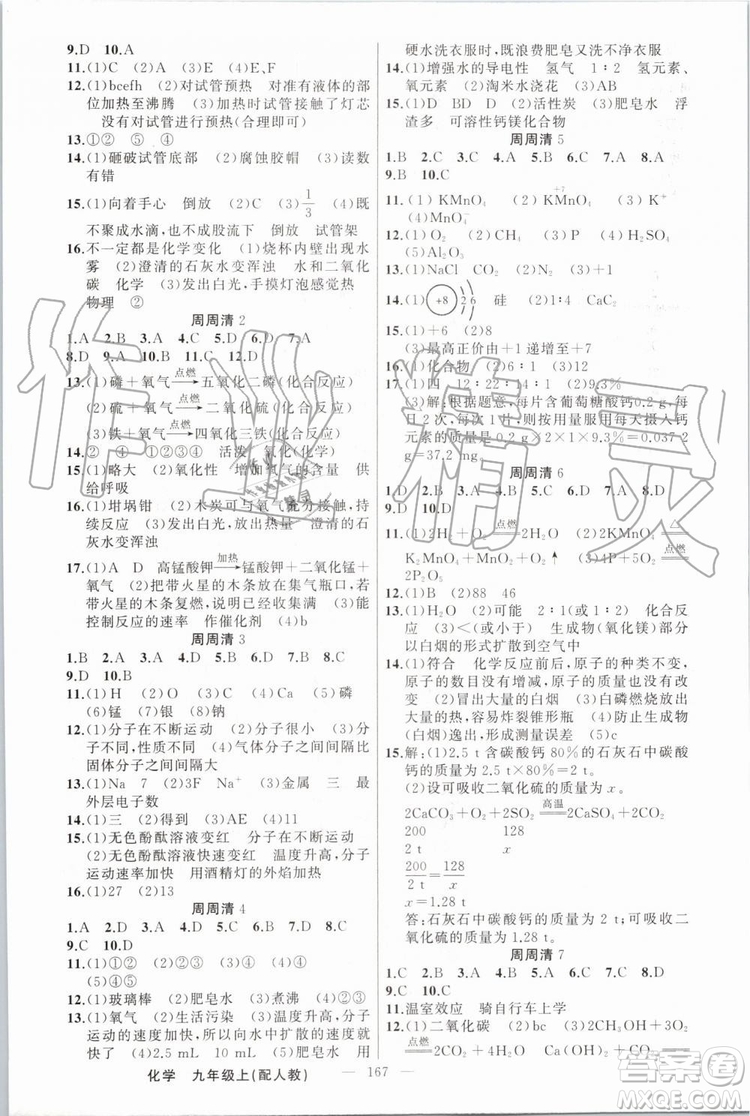 9.D　10.A
11.(1)C　(2)A　(3)D　(4)E、F
12.(1)bcefh　(2)对试管预热　对准有液体的部
位加热至沸腾　(3)加热时试管接触了灯芯
没有对试管进行预热(合理即可)
13.①②　⑤　④
14.(1)砸破试管底部　(2)腐蚀胶帽　(3)读数
有错
15.(1)向着手心　倒放　(2)C　(3)1/3　(4)既
不聚成水滴，也不成股流下　倒放　试管架
16.不一定都是化学变化　(1)烧杯内壁出现水
雾　(2)澄清的石灰水变浑浊　水和二氧化
碳　化学　(3)发出白光，手摸灯泡感觉热
物理　②
周周清 2
1.A　2.B　3.A　4.C　5.D　6.A　7.B
8.D　9.A　10.B　11.D　12.C
13.(1)磷＋氧气 点燃→ 五氧化二磷(化合反应)
(2)硫＋氧气 点燃→ 二氧化硫(化合反应)
(3)铁＋氧气 点燃→ 四氧化三铁(化合反应)
14.②　①③④　活泼　氧化　化学
15.(1)略大　(2)氧化性　增加氧气的含量　供
给呼吸
16.(1)坩埚钳　(2)木炭可与氧气充分接触，持
续反应　(3)发出白光，放出热量　澄清的石
灰水变浑浊
17.(1)A　D　高锰酸钾 加热→ 锰酸钾＋二氧化锰＋
氧气　(2)把带火星的木条放在集气瓶口，若
带火星的木条复燃，说明已集满　(3)能
控制反应的速率　作催化剂　(4)b
周周清 3
1.B　2.B　3.A　4.D　5.D　6.C　7.B　8.A
9.D　10.B
11.(1)H　(2)O　(3)N　(4)Ca　(5)磷
(6)锰　(7)银　(8)钠
12.(1)分子在不断运动　(2)分子很小　(3)分
子在不断运动　(4)气体分子之间间隔比
固体分子之间间隔大
13.(1)Na　7　(2)Na⁺　(3)金属　三　最
外层电子数
14.(1)三　(2)得到　(3)AE　(4)11
15.(1)无色酚酞溶液变红　分子在不断运动
(2)无色酚酞溶液快速变红　温度升高，分子
运动速率加快　用酒精灯的外焰加热
16.(1)27　(2)13
周周清 4
1.A　2.D　3.A　4.C　5.B　6.D　7.D　8.B
9.C　10.D
11.(1)①②　(2)①②④　(3)①②④　(4)①②
(5)④⑤
12.(1)玻璃棒　(2)③　(3)煮沸　(4)①②④
13.(1)氧气　(2)生活污染　(3)温度升高，分子
运动的速度加快，所以向水中扩散的速度就
加快　(4)2.5 mL　10 mL　(5)肥皂水　用
硬水洗衣服时，既浪费肥皂又洗不净衣服
14.(1)增强水的导电性　氢气　1∶2　氢元素、
氧元素　(2)淘米水浇花　(3)AB
15.(1)D　BD　D　(2)活性炭　(3)肥皂水　浮
渣多　可溶性钙镁化合物
周周清 5
1.B　2.C　3.C　4.A　5.D　6.A　7.D　8.A
9.B　10.C
11.(1)KMnO₄　(2)KMnO₄(+7)　(3)K⁺
(4)MnO₄⁻
12.(1)O₂　(2)CH₄　(3)P　(4)H₂SO₄
(5)Al₂O₃
13.(1)NaCl　CO₂　(2)N₂　(3)＋1
14.(1)+8 2 6　硅　(2)1∶4　CaC₂
15.(1)＋6　(2)8
(3)最高正价由＋1 升高至＋7
16.(1)化合物　(2)6∶3　(3)12
17.(1)四　12∶22∶14∶1　(2)9.3%
(3)解：根据题意，每片含葡萄糖酸钙0.2 g，每
日2次，每次1片，则按用量服用每天摄入钙
元素的质量为0.2 g×1×2×9.3%＝0.037 2 g
＝37.2 mg。
周周清 6
1.D　2.A　3.C　4.D　5.C　6.B　7.B　8.C
9.D　10.D
11.(1)2H₂＋O₂ 点燃= 2H₂O　(2)2KMnO₄ △=
K₂MnO₄＋MnO₂＋O₂↑　(3)4P＋5O₂ 点燃=
2P₂O₅
12.(1)B　(2)88　46
13.(1)H₂O　(2)可能　2∶1　化合反
应　(3)＜(或小于)　生成物(氧化镁)部分
以白烟的形式扩散到空气中
14.(1)符合　化学反应前后，原子的种类不变，
原子的数目没有增减，原子的质量也没有改
变　(2)冒出大量的白烟　(3)白磷燃烧放出
大量的热，容易炸裂锥形瓶　(4)防止生成的
白烟逸出，形成测量误差　(5)c
15.解：(1)2.5 t含碳酸钙80%的石灰石中碳酸
钙的质量为2.5 t×80%＝2 t
(2)设可吸收二氧化硫的质量为x。
2CaCO₃＋O₂＋2SO₂ 高温= 2CaSO₄＋2CO₂
200　128
2 t　x
200/2 t＝128/x　x＝1.28 t
答：石灰石中碳酸钙的质量为2 t；可吸收二
氧化硫的质量为1.28 t。
周周清 7
1.C　2.B　3.A　4.B　5.B　6.D　7.D　8.A
9.C　10.C
11.温室效应　骑自行车上学
12.(1)二氧化碳　(2)bc　(3)
化学　九年级上(配人教)
— 167 —
作业精灵
答案圈